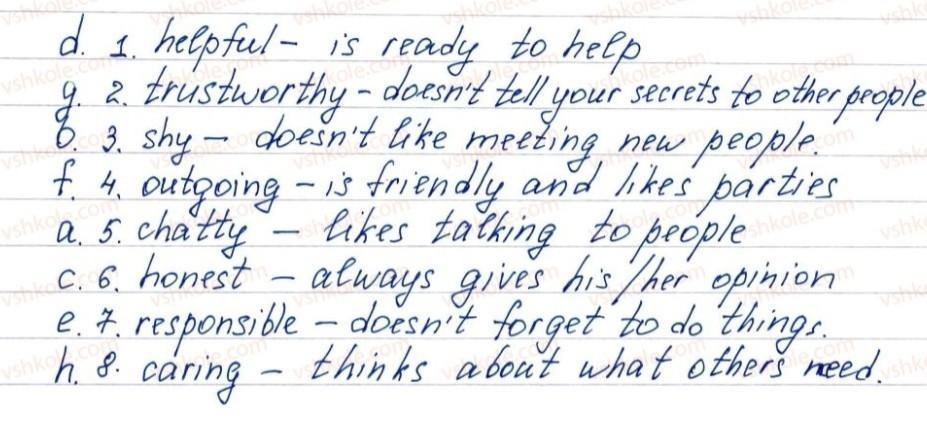 d. 1. helpful - is ready to help
g. 2. trustworthy - doesn't tell your secrets to other people
b. 3. shy - doesn't like meeting new people.
f. 4. outgoing - is friendly and likes parties
a. 5. chatty - likes talking to people
c. 6. honest - always gives his/her opinion
e. 7. responsible - doesn't forget to do things.
h. 8. caring - thinks about what others need.